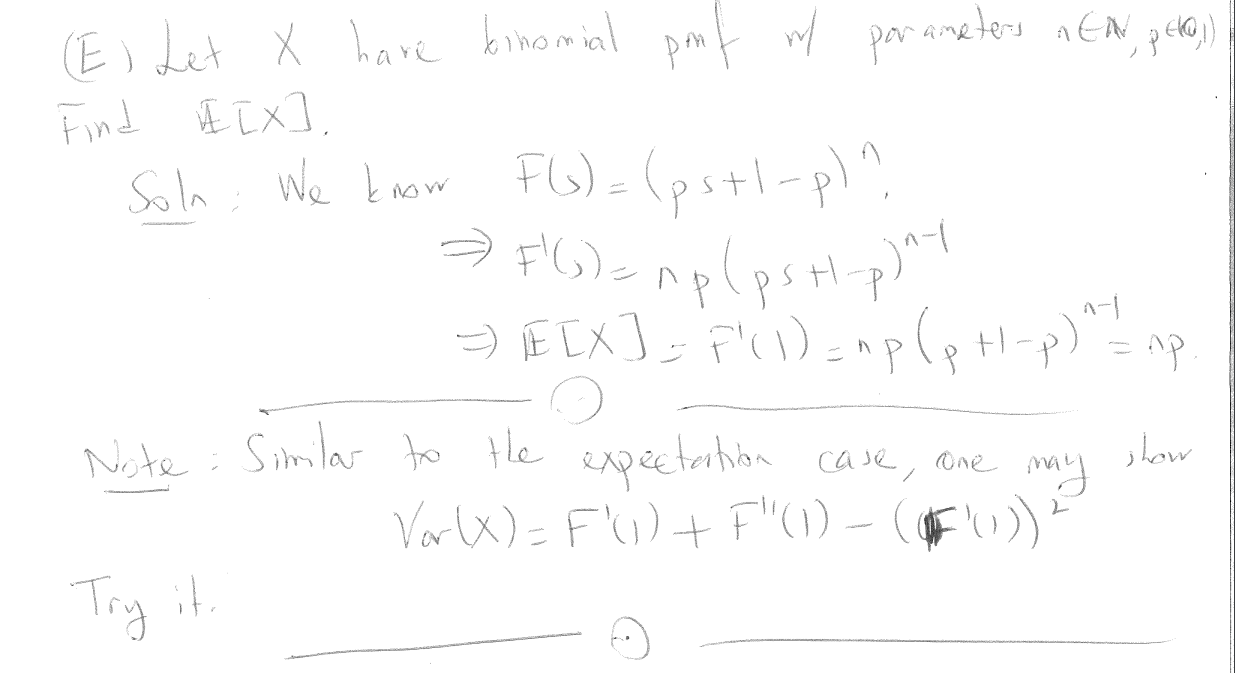 (E) Let X have binomial pmf w/ parameters n∈ℕ, p∈(0,1)
Find 𝔼[X].
Soln: We know F(s) = (ps+1-p)ⁿ.
⇒ F'(s) = np(ps+1-p)ⁿ⁻¹
⇒ 𝔼[X] = F'(1) = np(p+1-p)ⁿ⁻¹ = np.
Note: Similar to the expectation case, one may show
Var(X) = F'(1) + F''(1) - (F'(1))²
Try it.